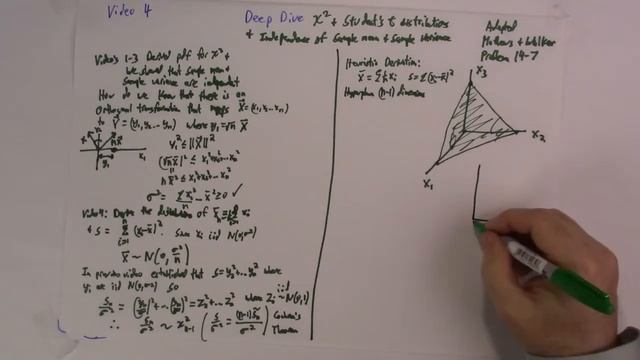 Video 4
Deep Dive x² + Student's t distributions
+ Independence of Sample mean + Sample variance
Adapted
Mathews + Walker
Problem 14-7
Video's 1-3 Derived pdf for x² +
we showed that sample mean +
Sample variance are independent
How do we know that there is an
Orthogonal transformation that maps X̄=(x₁,x₂...xₙ)
to Ȳ=(y₁,y₂...yₙ) where y₁=√n x̄
y₁² ≤ ||X̄||²
(√n x̄)² ≤ x₁²+x₂²...xₙ²
n x̄² ≤ x₁²+x₂²...xₙ²
σ² = Σxᵢ²/n − x̄² ≥ 0 ✓
x₁
Video 4: Derive the distribution of x̄ₙ = 1/n Σ xᵢ
+ S = Σ (xᵢ-x̄)². Since xᵢ iid N(0,σ²)
x̄ ~ N(0, σ²/n)
In previous video established that S=y₂²+...yₙ² where
yᵢ are iid N(0,σ²) so
Sₙ/σ² = (y₂/σ)²+...(yₙ/σ)² = Z₂²+...Zₙ² where Zᵢ ~ N(0,1)
iid
∴ Sₙ/σ² ~ x²ₙ₋₁ (S/σ² = (n-1)Sₙ/σ²) Cochran's
Theorem
Heuristic Derivation:
x̄ = Σ 1/n xᵢ S = Σ(xᵢ-x̄)²
Hyperplane (n-1) dimensions
x₃
x₂
x₁